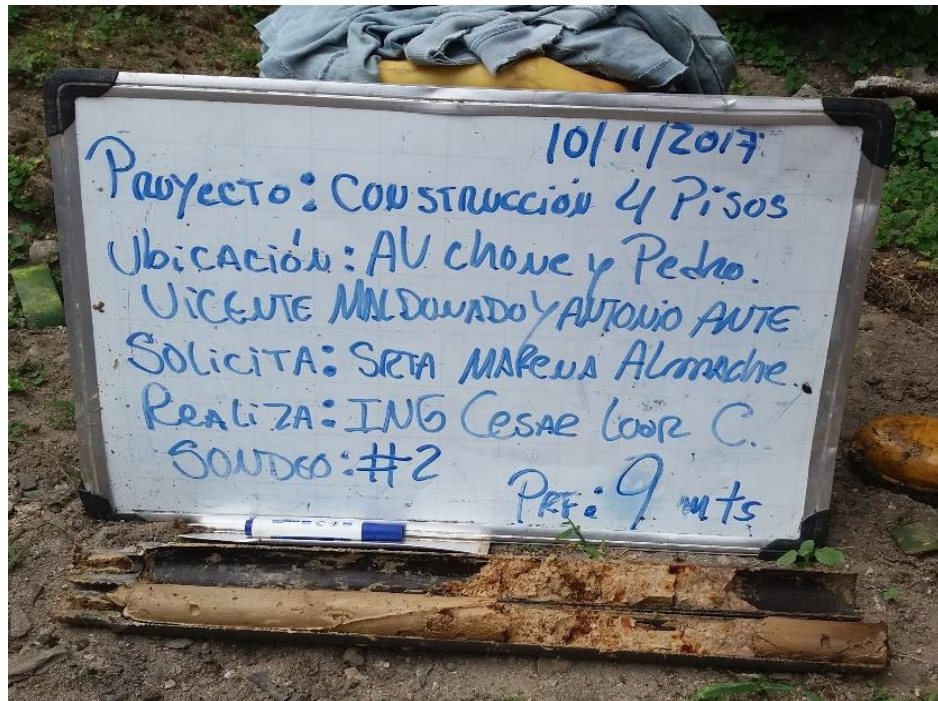 10/11/2017
Proyecto: Construcción 4 Pisos
Ubicación: AV chone y Pedro.
Vicente Maldonado y Antonio Ante
Solicita: Srta Marena Almache.
Realiza: ING Cesar Loor C.
Sondeo: #2
Prf: 9 mts